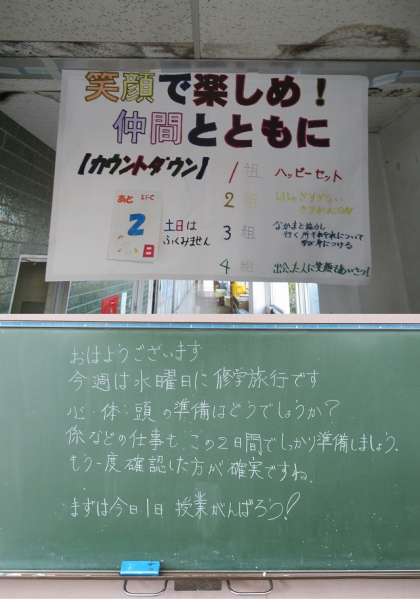 笑顔で楽しめ!
仲間とともに
【カウントダウン】
あと
2
日
土日は
ふくみません
1 組 ハッピーセット
2
3 組
行く所
身につける
4 組 出会った人に笑顔であいさつ!
おはようございます
今週は水曜日に修学旅行です
心・体・頭の準備はどうでしょうか?
係などの仕事も、この2日間でしっかり準備しましょう。
もう一度確認した方が確実ですね。
まずは今日1日 授業がんばろう!